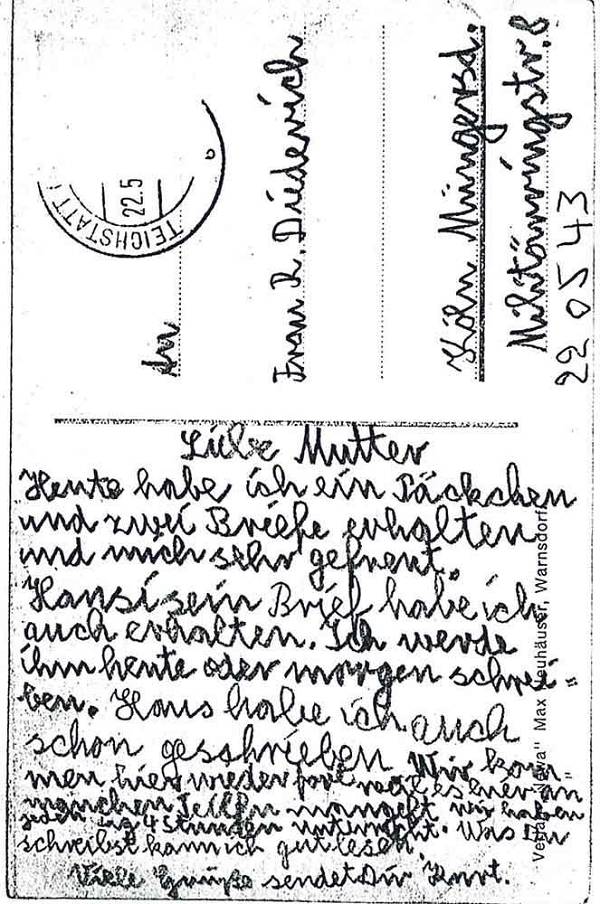 TEICHSTATT
22.5
An
Frau R. Diederich
Köln Müngersd.
Militärringstr. 8
22 05 43
Liebe Mutter
Heute habe ich ein Päckchen
und zwei Briefe erhalten
und mich sehr gefreut.
Hansi sein Brief habe ich
auch erhalten. Ich werde
ihm heute oder morgen schrei"
ben. Hans habe ich auch
schon gesschrieben Wir kom"
men hier wieder fort weil es hier an
manchen mangelt wir haben
jeden Tag 4 Stunden unterricht. Was Du
schreibst kann ich gut lesen.
Viele Grüße sendet Dir Kurt.
Max Neuhäuser, Warnsdorf